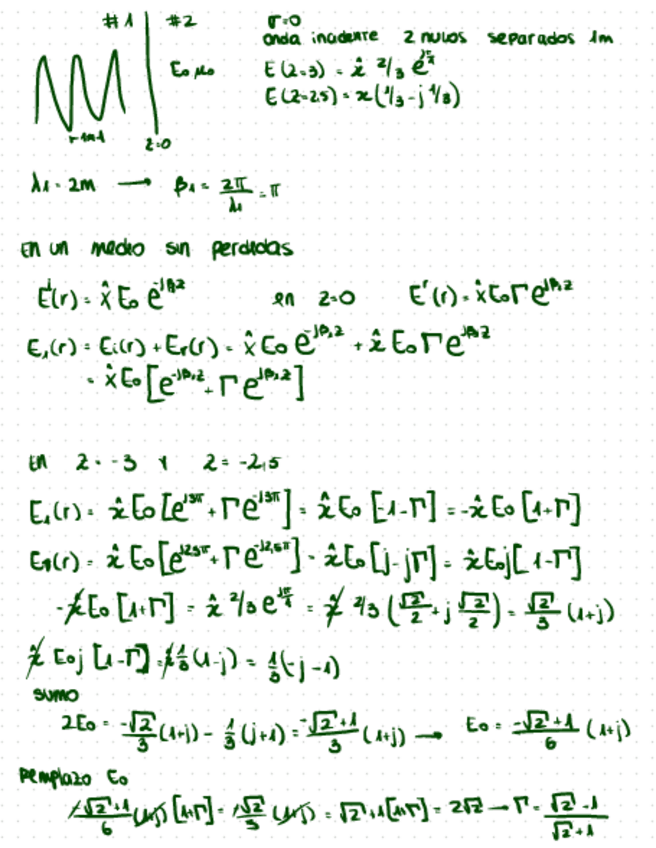 #1 #2 σ=0
onda incidente 2 nulos separados 1m
ε₀ μ₀ E(z=3) = x̂ 2/3 e^{jπ/4}
E(z=2.5) = x(1/3 - j 1/3)
1m
z=0
λ₁ = 2m → β₁ = 2π/λ₁ = π
En un medio sin perdidas
Eⁱ(r) = x̂ E₀ e^{-jβ₁z} en z=0 Eʳ(r) = x̂ E₀ Γ e^{jβ₁z}
E₁(r) = Ei(r) + Er(r) = x̂ E₀ e^{-jβ₁z} + x̂ E₀ Γ e^{jβ₁z}
= x̂ E₀ [e^{-jβ₁z} + Γ e^{jβ₁z}]
En z = -3 y z = -2,5
E₁(r) = x̂ E₀ [e^{j3π} + Γ e^{-j3π}] = x̂ E₀ [-1-Γ] = -x̂ E₀ [1+Γ]
E₁(r) = x̂ E₀ [e^{j2,5π} + Γ e^{-j2,5π}] = x̂ E₀ [j-jΓ] = x̂ E₀ j [1-Γ]
-x̂ E₀ [1+Γ] = x̂ 2/3 e^{jπ/4} = x̂ 2/3 (√2/2 + j √2/2) = √2/3 (1+j)
x̂ E₀ j [1-Γ] = x̂ 1/3 (1-j) = 1/3 (-j-1)
sumo
2E₀ = -√2/3 (1+j) - 1/3 (j+1) = -√2+1/3 (1+j) → E₀ = -√2+1/6 (1+j)
Remplazo E₀
-√2+1/6 (1+j) [1+Γ] = -√2/3 (1+j) = √2+1 [1+Γ] = 2√2 → Γ = √2-1/√2+1